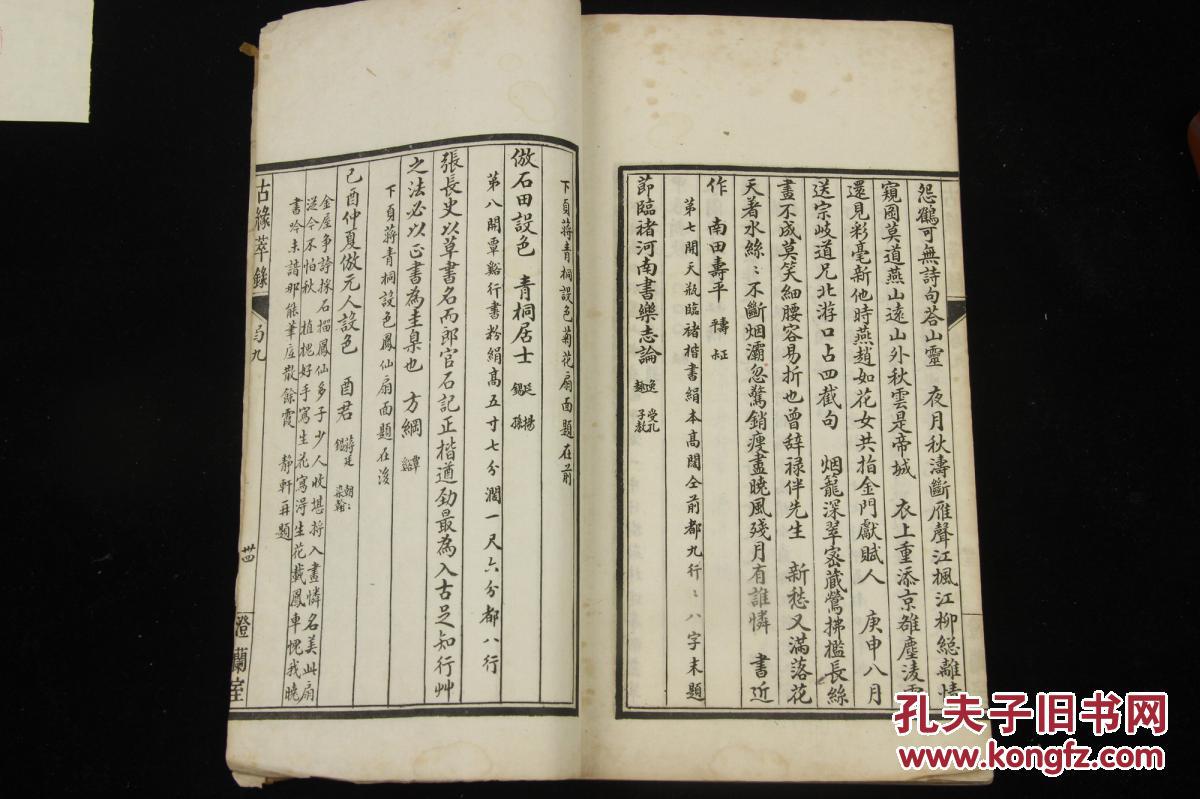 怨鶴可無詩句荅山靈　夜月秋濤斷雁聲江楓江柳總離情
窺園莫道燕山遠山外秋雲是帝城　衣上重添京雒塵凌雲
還見彩毫新他時燕趙如花女共指金門獻賦人　庚申八月
送宗岐道兄北游口占四截句　烟籠深翠密藏鶯拂檻長絲
畫不成莫笑細腰容易折也曾辞祿伴先生　新愁又滿落花
天著水絲〻不斷烟灞忽驚銷瘦盡曉風殘月有誰憐　書近
作　南田壽平
第七開天瓶臨褚楷書絹本高闊仝前都九行〻八字末題
節臨褚河南書樂志論
下頁蔣青桐設色菊花扇面題在前
倣石田設色　青桐居士
第八開覃谿行書粉絹高五寸七分濶一尺六分都八行
張長史以草書名而郎官石記正楷遒勁最為入古足知行艸
之法必以正書為圭臬也　方綱
下頁蔣青桐設色鳳仙扇面題在後
己酉仲夏倣元人設色　酉君
金屋爭誇採石榴鳳仙多子少人收堪將入畫憐名美此扇
從今不怕秋　植槐好手寫生花寫淂生花載鳳車愧我曉
書吟未諳那能筆底散餘霞　靜軒再題
古緣萃錄
弓九
卌
澄蘭室
孔夫子旧书网
www.kongfz.com